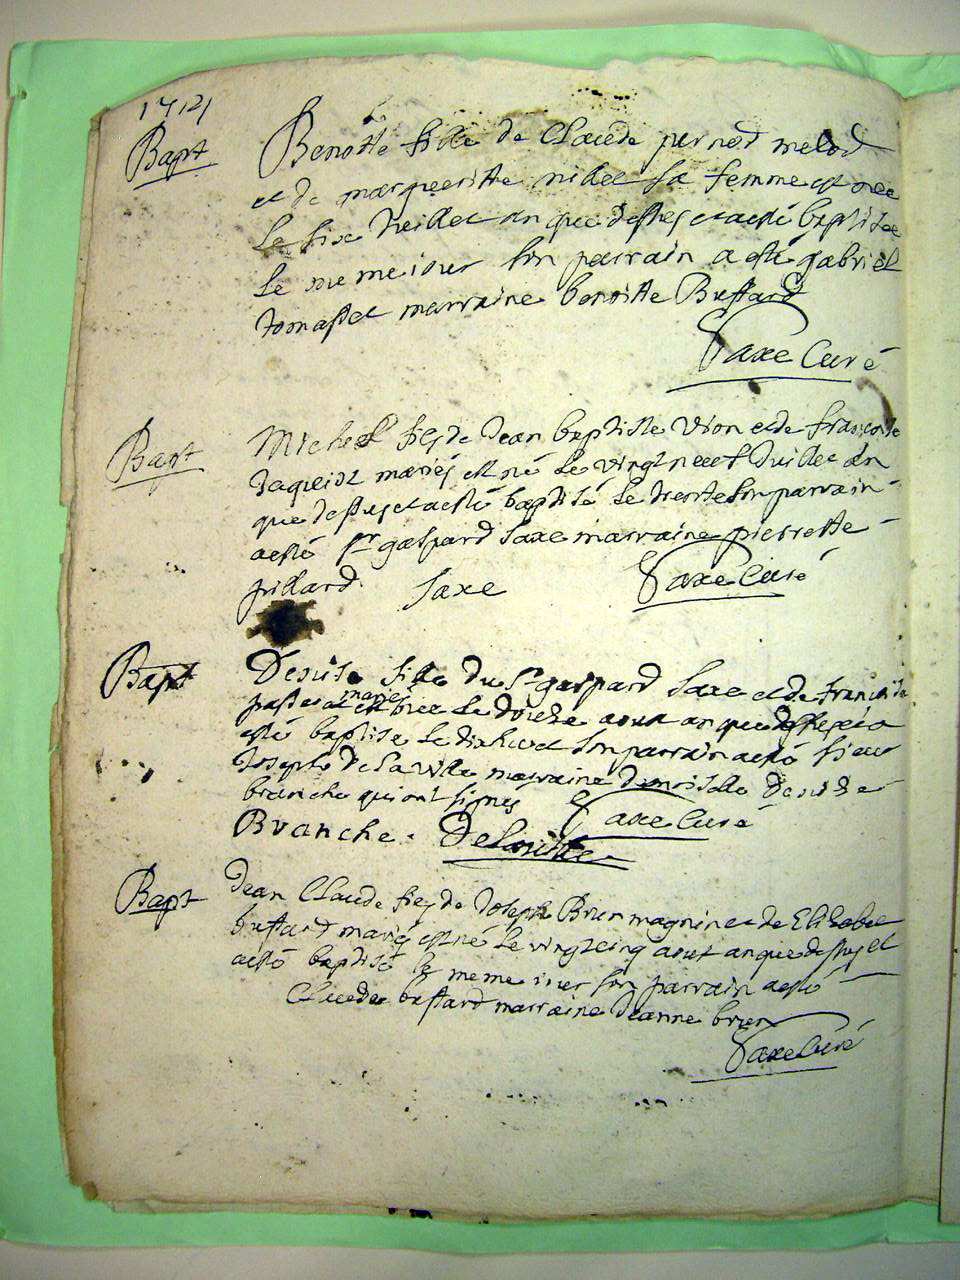 1712
Bapt Benoitte fille de Claude pernod melod
et de margueritte nillet sa femme est nee
le six Juillet an que dessus et a esté baptisee
le meme iour son parrain a esté gabriel
tomasset marraine benoitte Bussard
Saxe Curé
Bapt Michel fils de Jean baptiste Vion et de francoise
Jaquiot mariés est né le vingt neuf Juillet an
que dessus et a esté baptisé le trente son parrain
a esté sr gaspard Saxe marraine pierrette
pillard Saxe Saxe Curé
Bapt Denise fille du Sr gaspard Saxe et de
mariés est nee le douze aout an que dessus et a
esté baptisee le dixhuet son parrain a esté sieur
Joseph De la ville marraine demoiselle Denise
branche qui ont signes Saxe Curé
Branche . Delaville
Bapt Jean Claude fils de Joseph Brun magnin et de Elizabet
bussard mariés est né le vingt cinq aout an que dessus et
a esté baptisé le meme iour son parrain a esté
Claude bussard marraine Jeanne brun
Saxe Curé